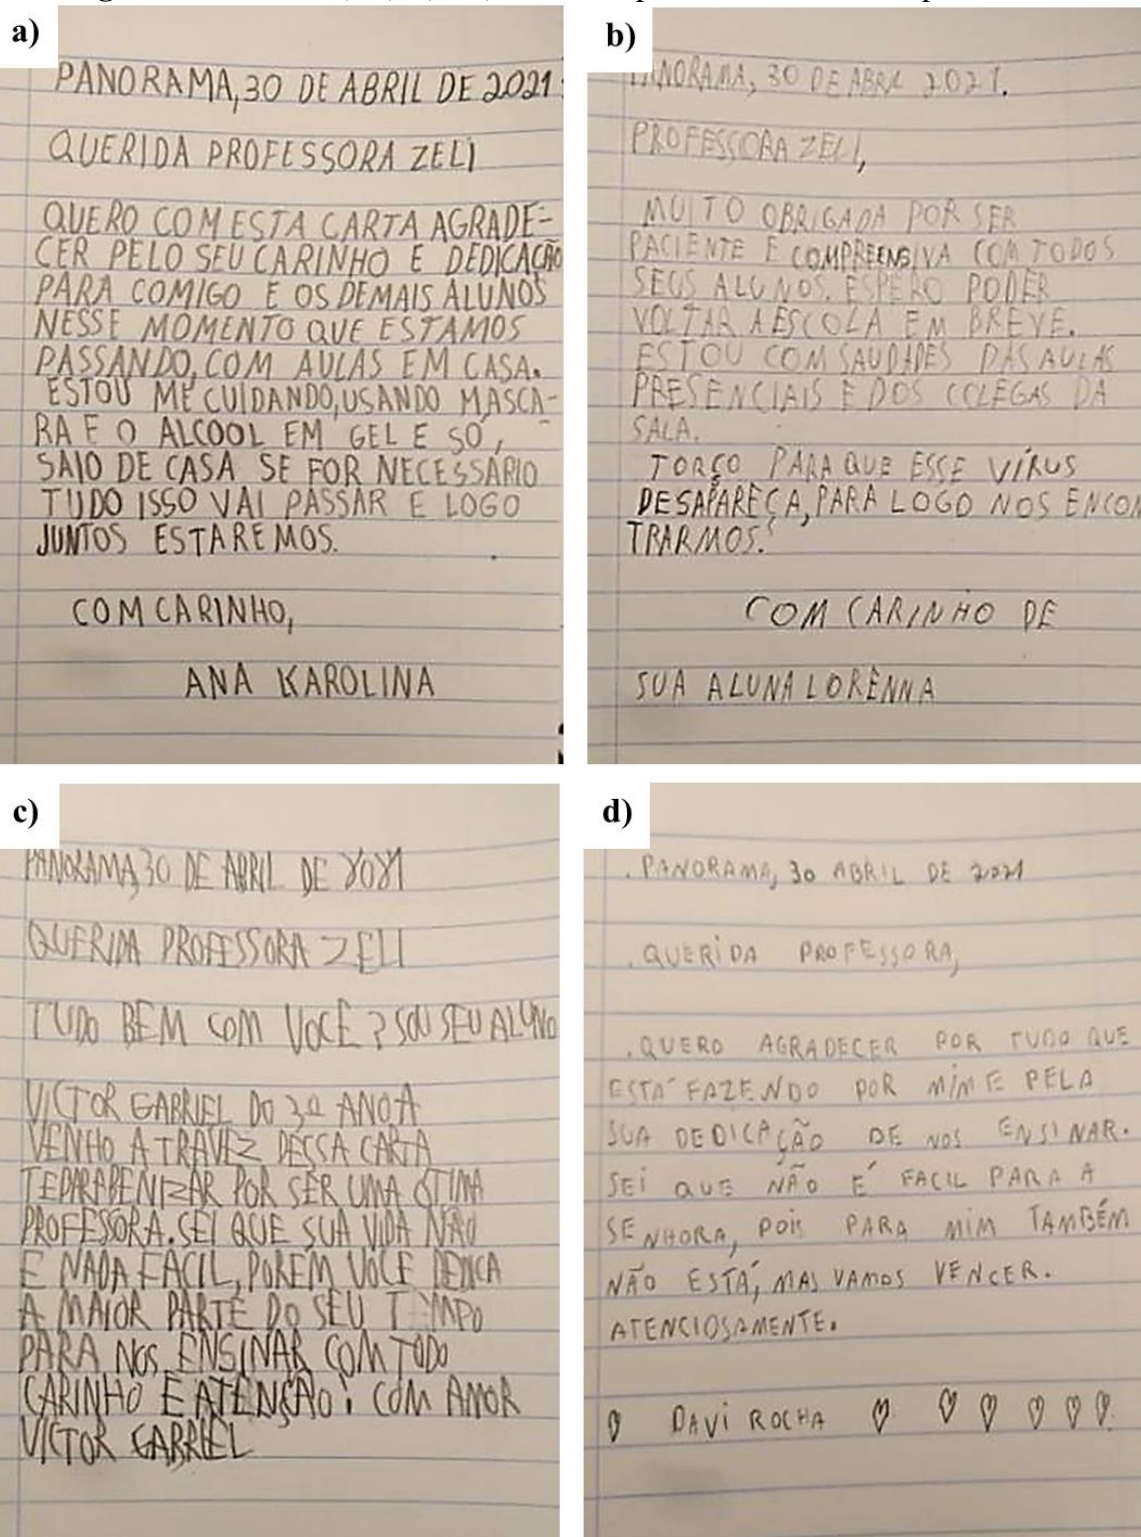 a)
PANORAMA, 30 DE ABRIL DE 2021.
QUERIDA PROFESSORA ZELI
QUERO COM ESTA CARTA AGRADE-
CER PELO SEU CARINHO E DEDICAÇÃO
PARA COMIGO E OS DEMAIS ALUNOS
NESSE MOMENTO QUE ESTAMOS
PASSANDO, COM AULAS EM CASA.
ESTOU ME CUIDANDO, USANDO MASCA-
RA E O ALCOOL EM GEL E SÓ,
SAIO DE CASA SE FOR NECESSÁRIO
TUDO ISSO VAI PASSAR E LOGO
JUNTOS ESTAREMOS.
COM CARINHO,
ANA KAROLINA
b)
PANORAMA, 30 DE ABRIL 2021.
PROFESSORA ZELI,
MUITO OBRIGADA POR SER
PACIENTE E COMPREENSIVA COM TODOS
SEUS ALUNOS. ESPERO PODER
VOLTAR A ESCOLA EM BREVE.
ESTOU COM SAUDADES DAS AULAS
PRESENCIAIS E DOS COLEGAS DA
SALA.
TORÇO PARA QUE ESSE VÍRUS
DESAPAREÇA, PARA LOGO NOS ENCON
TRARMOS.
COM CARINHO DE
SUA ALUNA LORÊNNA
c)
PANORAMA, 30 DE ABRIL DE 2021
QUERIDA PROFESSORA ZELI
TUDO BEM COM VOCÊ? SOU SEU ALUNO
VICTOR GABRIEL DO 3º ANO A
VENHO ATRAVEZ DESSA CARTA
TE PARABENIZAR POR SER UMA ÓTIMA
PROFESSORA. SEI QUE SUA VIDA NÃO
É NADA FÁCIL, PORÉM VOCÊ DEDICA
A MAIOR PARTE DO SEU TEMPO
PARA NOS ENSINAR COM TODO
CARINHO E ATENSÇÃO; COM AMOR
VICTOR GABRIEL
d)
. PANORAMA, 30 ABRIL DE 2021
. QUERIDA PROFESSORA,
. QUERO AGRADECER POR TUDO QUE
ESTÁ FAZENDO POR MIM E PELA
SUA DEDICAÇÃO DE NOS ENSINAR.
SEI QUE NÃO É FACIL PARA A
SENHORA, POIS PARA MIM TAMBÉM
NÃO ESTÁ, MAS VAMOS VENCER.
ATENCIOSAMENTE.
DAVI ROCHA